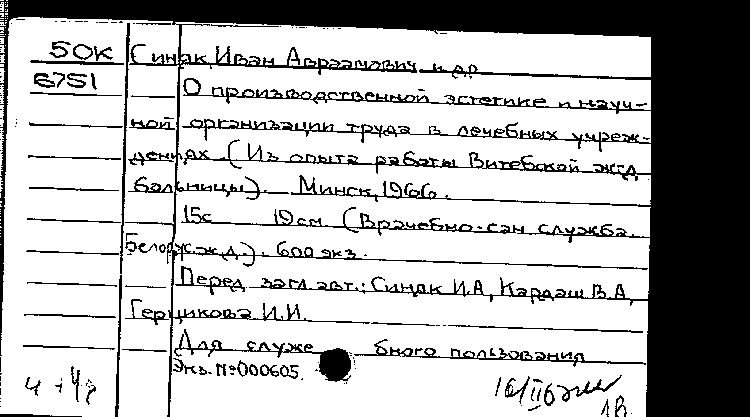 50К Синяк, Иван Авраамович и др
6751 О производственной эстетике и науч-
ной организации труда в лечебных учреж-
дениях. (Из опыта работы Витебской жд
больницы). Минск, 1966.
15с 19см (Врачебно-сан служба.
Белорус.ж.д.). 600 экз.
Перед загл. авт.: Синяк И.А, Кардаш В.А,
Герцикова И.И.
Для служебного пользования
Экз. №000605.